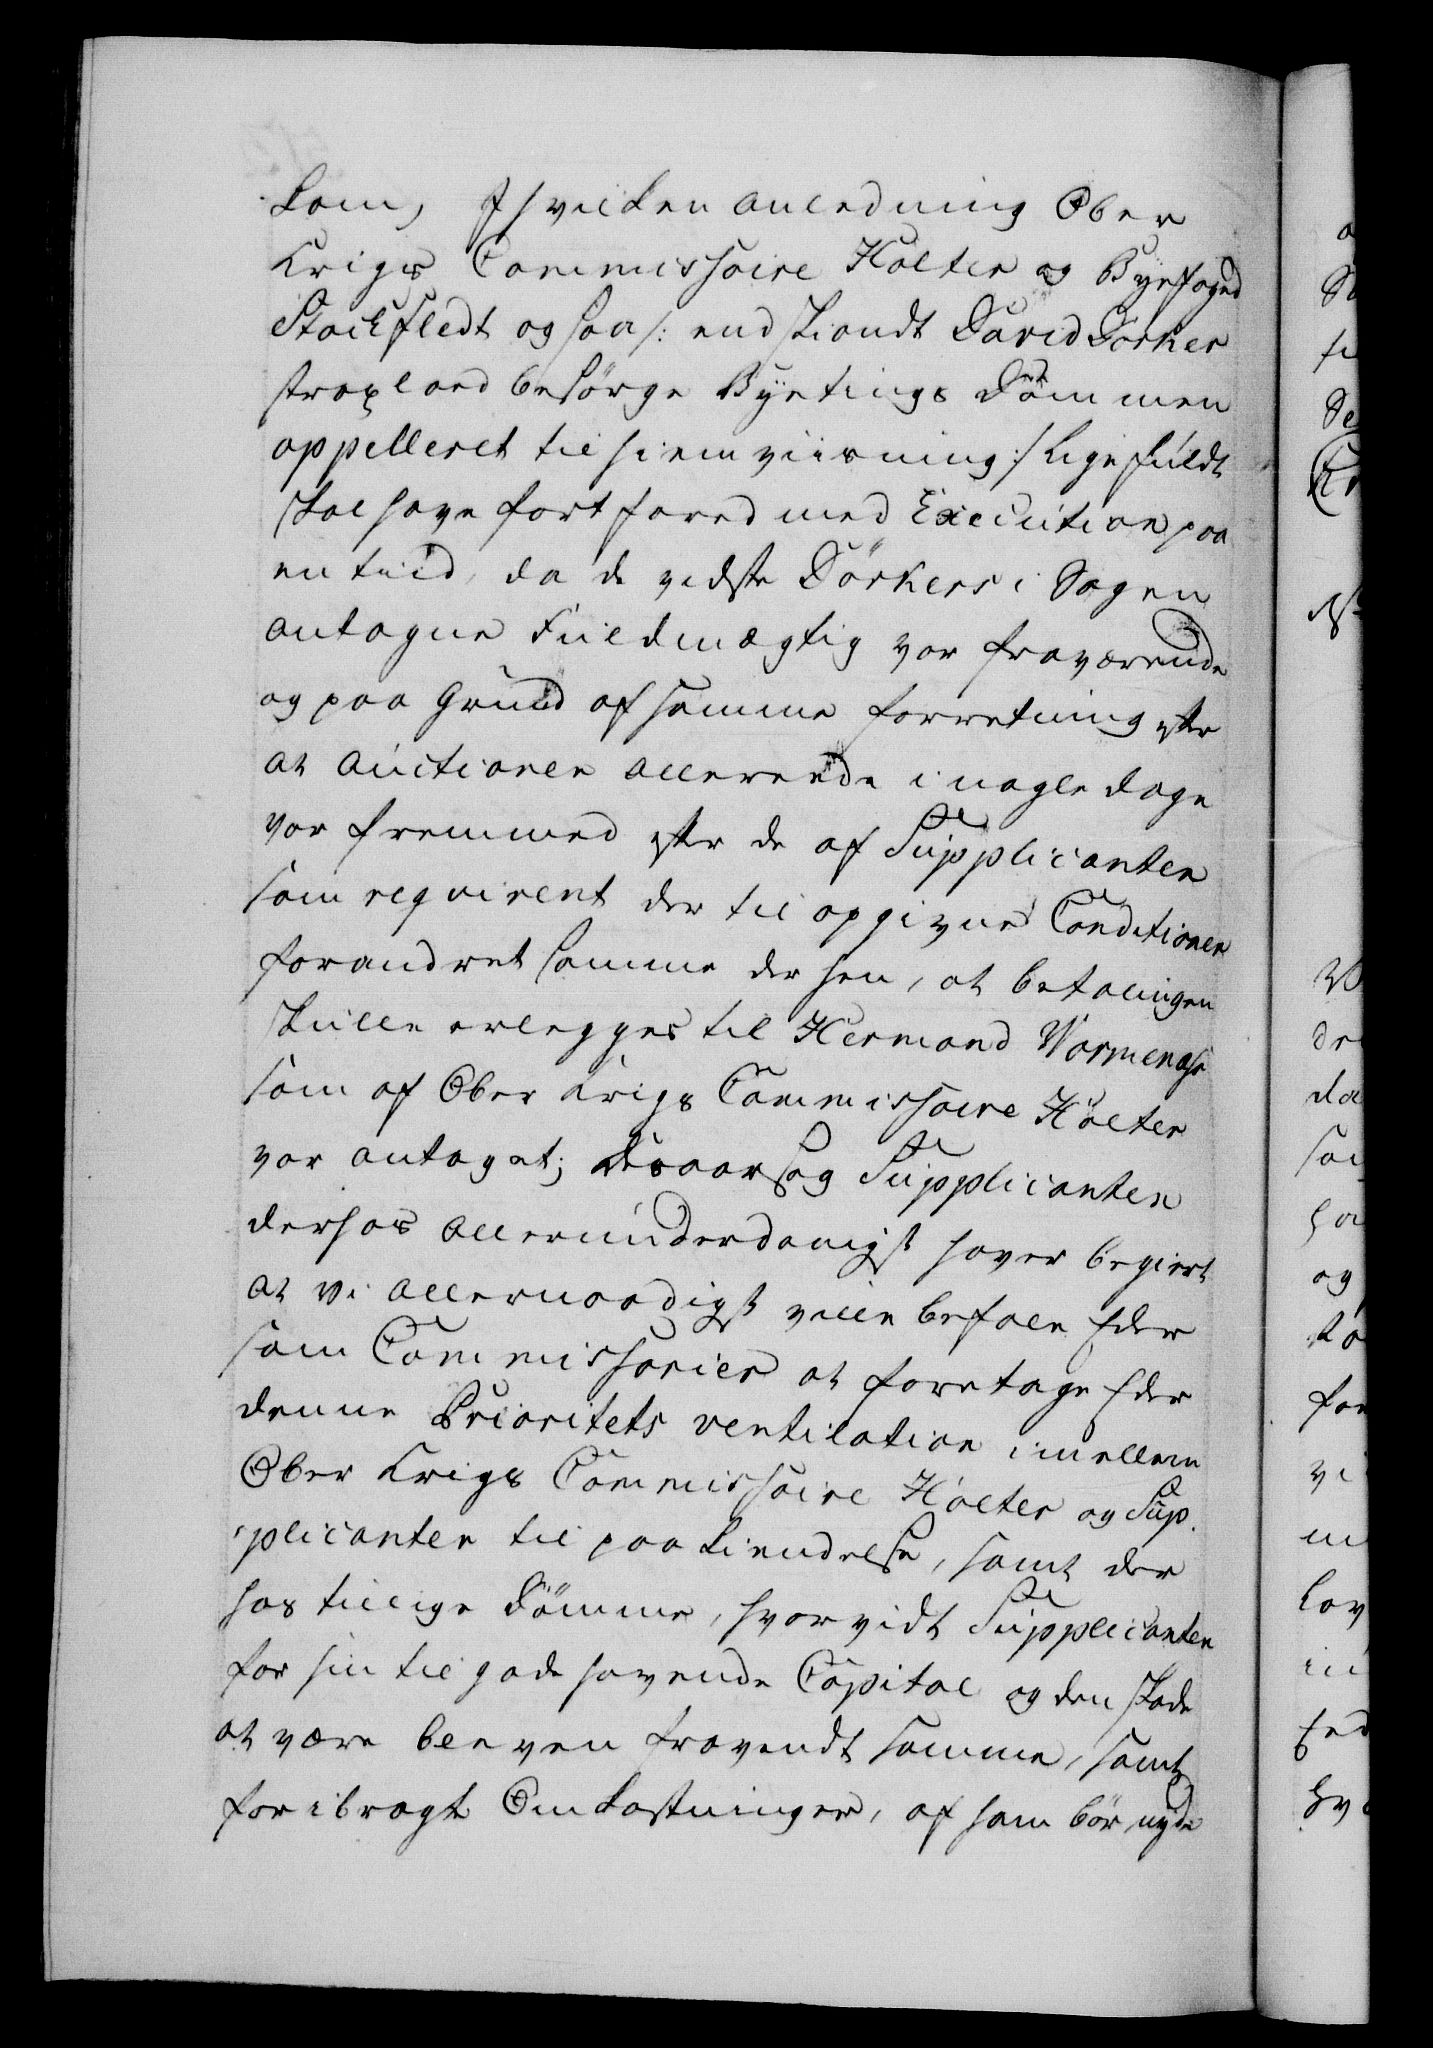 kom, I hvilken anledning Ober
Krigs Commissaire Holter og Byefoged
Stockfledt ogsaa /: endskiøndt David Dörker
strax lod besörge Byetings Dommen
appelleret til hiemviisning :/ ligefuldt
skal have fortfared med Execution paa
en tiid, da de vidste Dörkers i Sagen
antagne Fuldmægtig var fraværende
og paa Grund af samme forretning efter
at auctionen allereede i nogle dage
var fremmed efter de af Supplicanten
som requirent der til opgivne Conditioner
forandret samme der hen, at betalingen
skulle erlegges til Hermand Wormenase
som af Ober Krigs Commissaire Holter
var antaget; Desaarsag Supplicanten
derhos allerunderdanigst haver begiert
at Vi allernaadigst ville befale Eder
som Commissarier at foretage Eder
denne Prioritets ventilation imellem
Ober Krigs Commissaire Holter og Sup-
plicanten til paakiendelse, samt der
hos tillige dömme, hvorvidt Supplicanten
for sin til gode havende Capital og den skade
at være bleven fravendt samme, samt
foraarsagte Omkostninger, af ham bör nyde